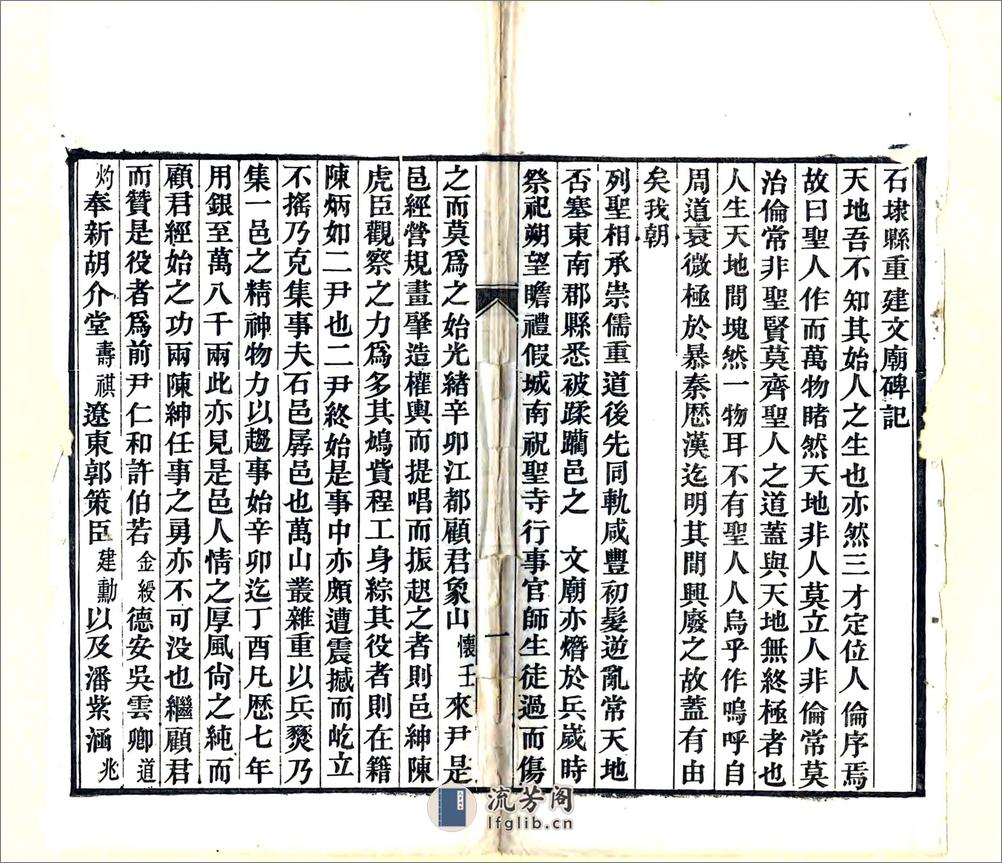 石埭縣重建文廟碑記
天地吾不知其始人之生也亦然三才定位人倫序焉
故曰聖人作而萬物睹然天地非人莫立人非倫常莫
治倫常非聖賢莫齊聖人之道蓋與天地無終極者也
人生天地間塊然一物耳不有聖人人烏乎作嗚呼自
周道衰微極於暴秦歷漢迄明其間興廢之故蓋有由
矣我朝
列聖相承崇儒重道後先同軌咸豐初髮逆亂常天地
否塞東南郡縣悉被蹂躪邑之　文廟亦燬於兵歲時
祭祀朔望瞻禮假城南祝聖寺行事官師生徒過而傷
一
之而莫爲之始光緒辛卯江都顧君象山懷壬來尹是
邑經營規畫肇造權輿而提唱而振起之者則邑紳陳
虎臣觀察之力爲多其鳩貲程工身綜其役者則在籍
陳炳如二尹也二尹終始是事中亦頗遭震撼而屹立
不搖乃克集事夫石邑孱邑也萬山叢雜重以兵燹乃
集一邑之精神物力以趨事始辛卯迄丁酉凡歷七年
用銀至萬八千兩此亦見是邑人情之厚風尙之純而
顧君經始之功兩陳紳任事之勇亦不可没也繼顧君
而贊是役者爲前尹仁和許伯若金綬德安吳雲卿道
灼奉新胡介堂壽祺遼東郭策臣建勳以及潘紫涵兆
流芳阁
lfglib.cn